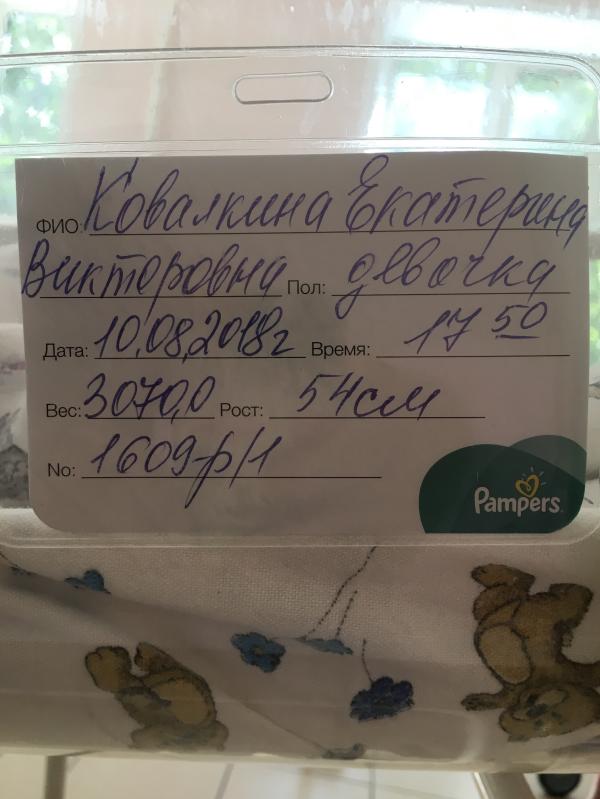 ФИО: Ковалкина Екатерина
Викторовна Пол: девочка
Дата: 10.08.2018г Время: 17 50
Вес: 3070,0 Рост: 54см
No: 1609р/1
Pampers